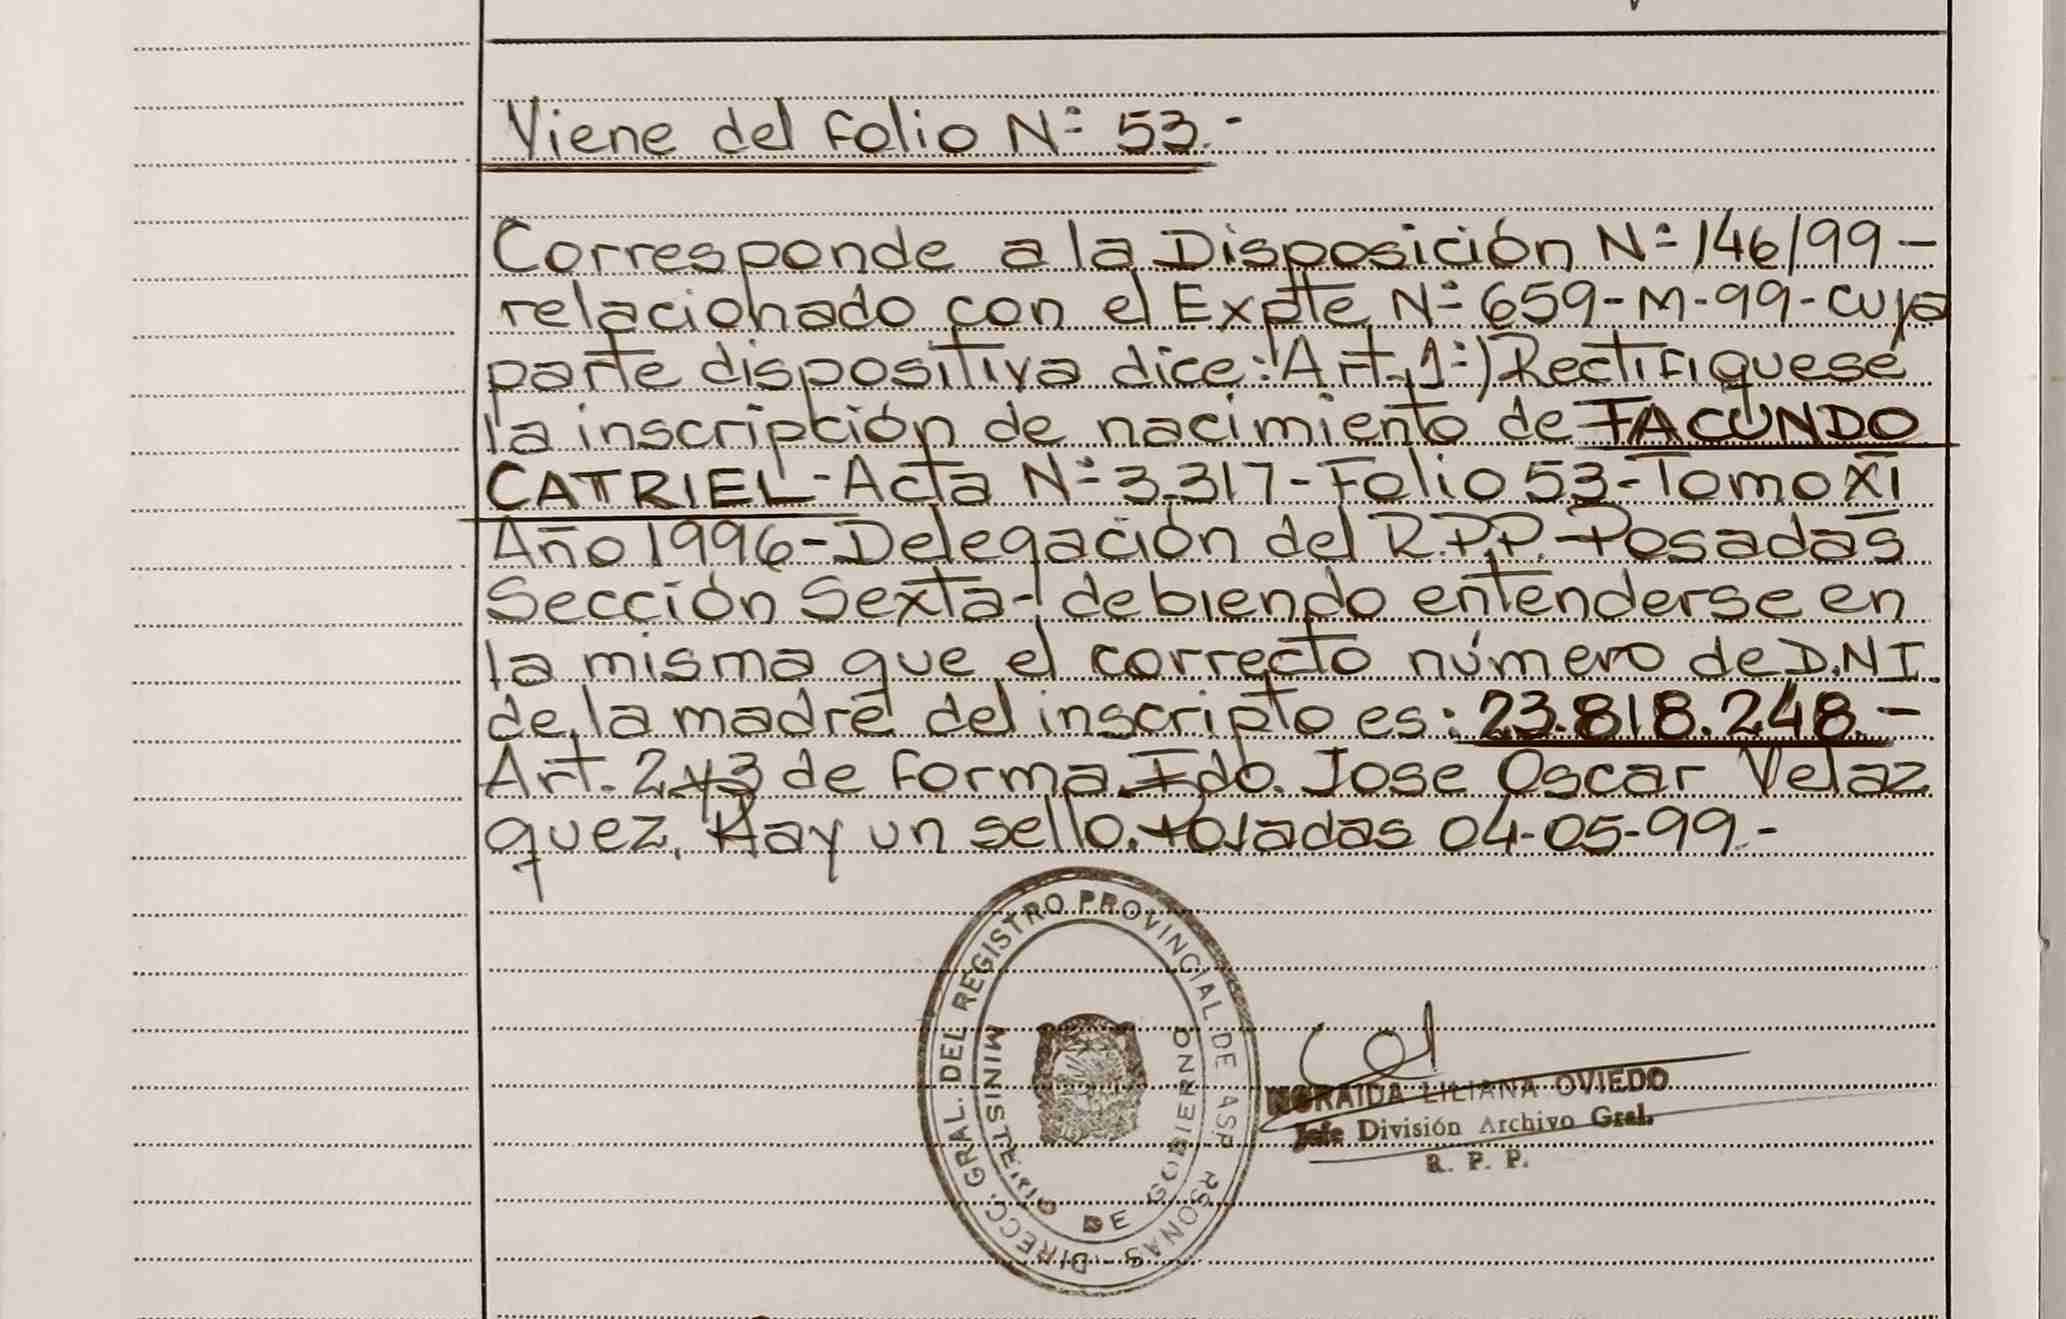 Viene del folio Nº 53.-
Corresponde a la Disposición Nº 146/99-
relacionado con el Expte Nº 659-M-99-cuya
parte dispositiva dice: Art. 1º) Rectifiquese
la inscripción de nacimiento de FACUNDO
CATRIEL-Acta Nº 3.317-Folio 53-Tomo XI
Año 1996-Delegación del R.P.P.-Posadas
Sección Sexta-debiendo entenderse en
la misma que el correcto número de D.NI.
de la madre del inscripto es: 23.818.248.-
Art. 2 y 3 de forma Fdo. Jose Oscar Velaz
quez. Hay un sello. Posadas 04-05-99.-
DIRECC. GRAL. DEL REGISTRO PROVINCIAL DE LAS PERSONAS
MINISTERIO DE GOBIERNO
NORAIDA LILIANA OVIEDO
Jefe División Archivo Gral.
R. P. P.